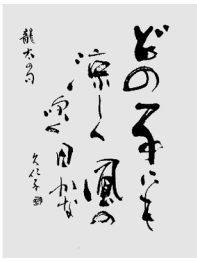 どの子にも
涼しく
風の
吹く
日かな
龍太の句
久仁子